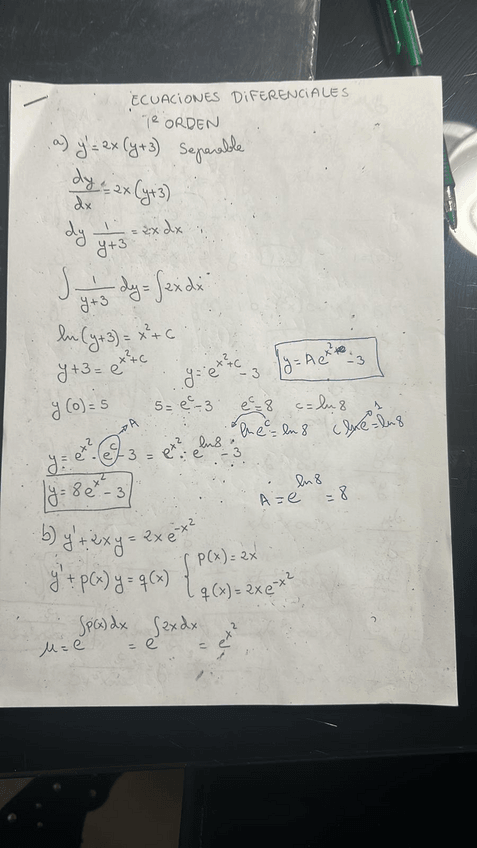 ECUACIONES DIFERENCIALES
1ᵉ ORDEN
a) y' = 2x (y+3) Separable
dy/dx = 2x (y+3)
dy 1/(y+3) = 2x dx
∫ 1/(y+3) dy = ∫ 2x dx
ln (y+3) = x² + C
y+3 = e^(x²+C) y = e^(x²+C) - 3 y = A e^(x²) - 3
y(0) = 5 5 = e^c - 3 e^c = 8 c = ln 8
ln e^c = ln 8 c ln e = ln 8 1
y = e^(x²) · e^c - 3 = e^(x²) · e^(ln 8) - 3 A
y = 8 e^(x²) - 3 A = e^(ln 8) = 8
b) y' + 2xy = 2x e^(-x²)
y' + p(x) y = q(x) { p(x) = 2x
q(x) = 2x e^(-x²)
μ = e^(∫p(x) dx) = e^(∫2x dx) = e^(x²)